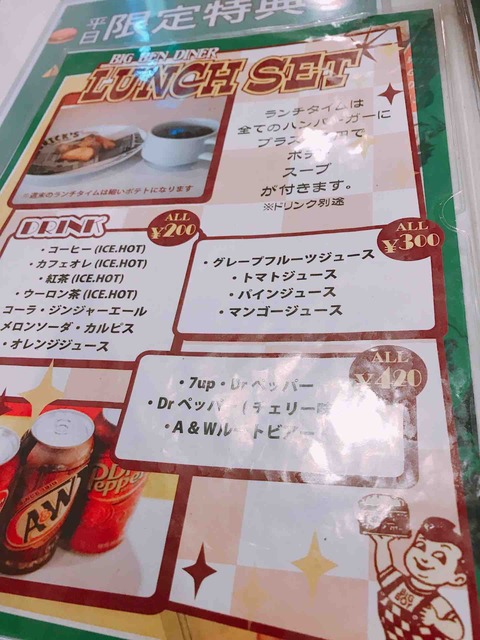 平日限定特典
BIG BEN DINER
LUNCH SET
ランチタイムは
全てのハンバーガーに
ポテト
スープ
が付きます。
※ドリンク別途
※週末のランチタイムは細いポテトになります
DRINK
ALL
¥200
・コーヒー (ICE.HOT)
・カフェオレ (ICE.HOT)
・紅茶 (ICE.HOT)
・ウーロン茶 (ICE.HOT)
コーラ・ジンジャーエール
メロンソーダ・カルピス
・オレンジジュース
ALL
¥300
・グレープフルーツジュース
・トマトジュース
・パインジュース
・マンゴージュース
ALL
¥420
・7up・Dr ペッパー
・Dr ペッパー ( チェリー味
・A & Wルートビアー
A&W
Dr Pepper